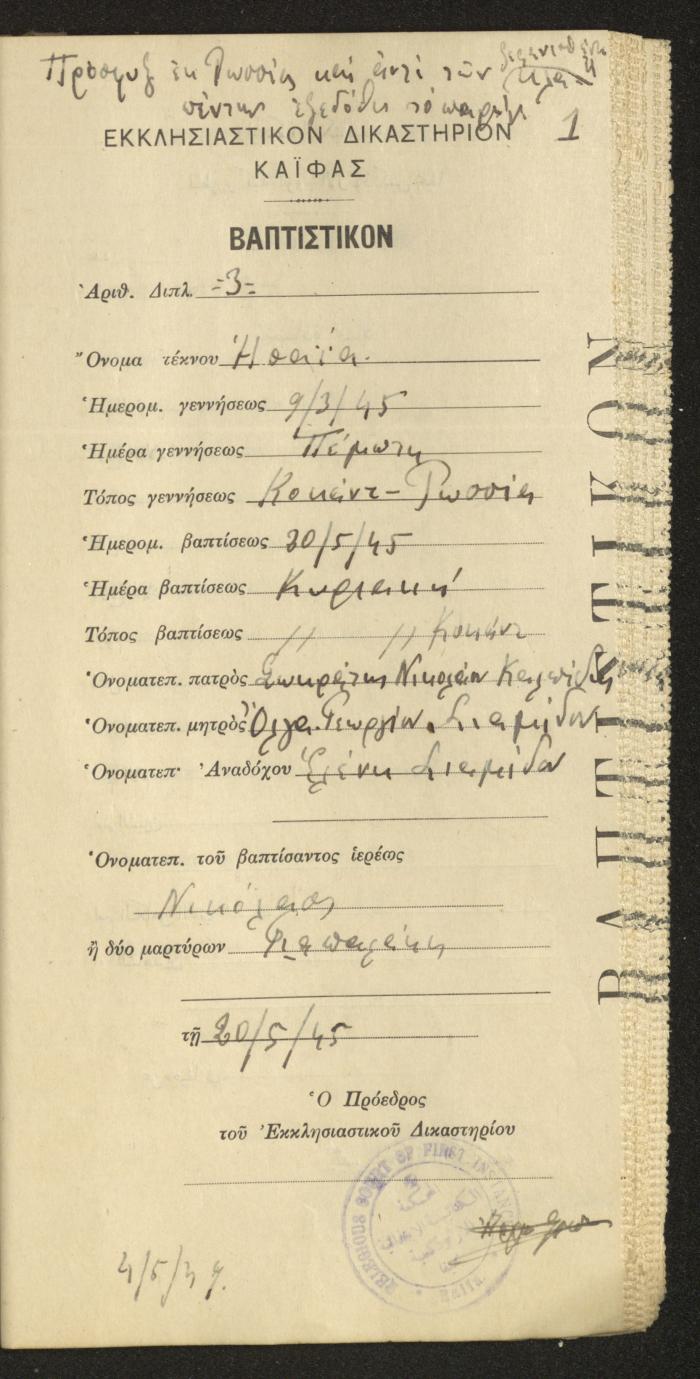 Πρόσφυξ ἐκ Ρωσσίας καὶ ἀντὶ τῶν
ἐξεδόθη τὸ παρὸν
1
ΕΚΚΛΗΣΙΑΣΤΙΚΟΝ ΔΙΚΑΣΤΗΡΙΟΝ
ΚΑΪΦΑΣ
ΒΑΠΤΙΣΤΙΚΟΝ
Ἀριθ. Διπλ. =3=
Ὄνομα τέκνου
Ἡμερομ. γεννήσεως 9/3/45
Ἡμέρα γεννήσεως Πέμπτη
Τόπος γεννήσεως Κοκάντ - Ρωσσία
Ἡμερομ. βαπτίσεως 20/5/45
Ἡμέρα βαπτίσεως Κυριακή
Τόπος βαπτίσεως // // Κοκάντ
Ὀνοματεπ. πατρὸς Σωκράτης Νικολάου
Ὀνοματεπ. μητρὸς Ὄλγα Γεωργίου Σιαμίδου
Ὀνοματεπ· Ἀναδόχου Ἑλένη Σιαμίδου
Ὀνοματεπ. τοῦ βαπτίσαντος ἱερέως
Νικόλαος
ἢ δύο μαρτύρων
τῇ 20/5/45
Ὁ Πρόεδρος
τοῦ Ἐκκλησιαστικοῦ Δικαστηρίου
RELIGIOUS COURT OF FIRST INSTANCE
4/5/47.
ΒΑΠΤΙΣΤΙΚΟΝ